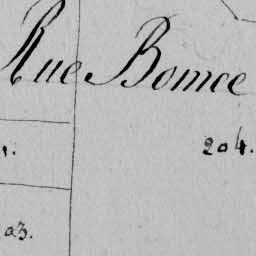 Rue Bomée
1.
204.
03.